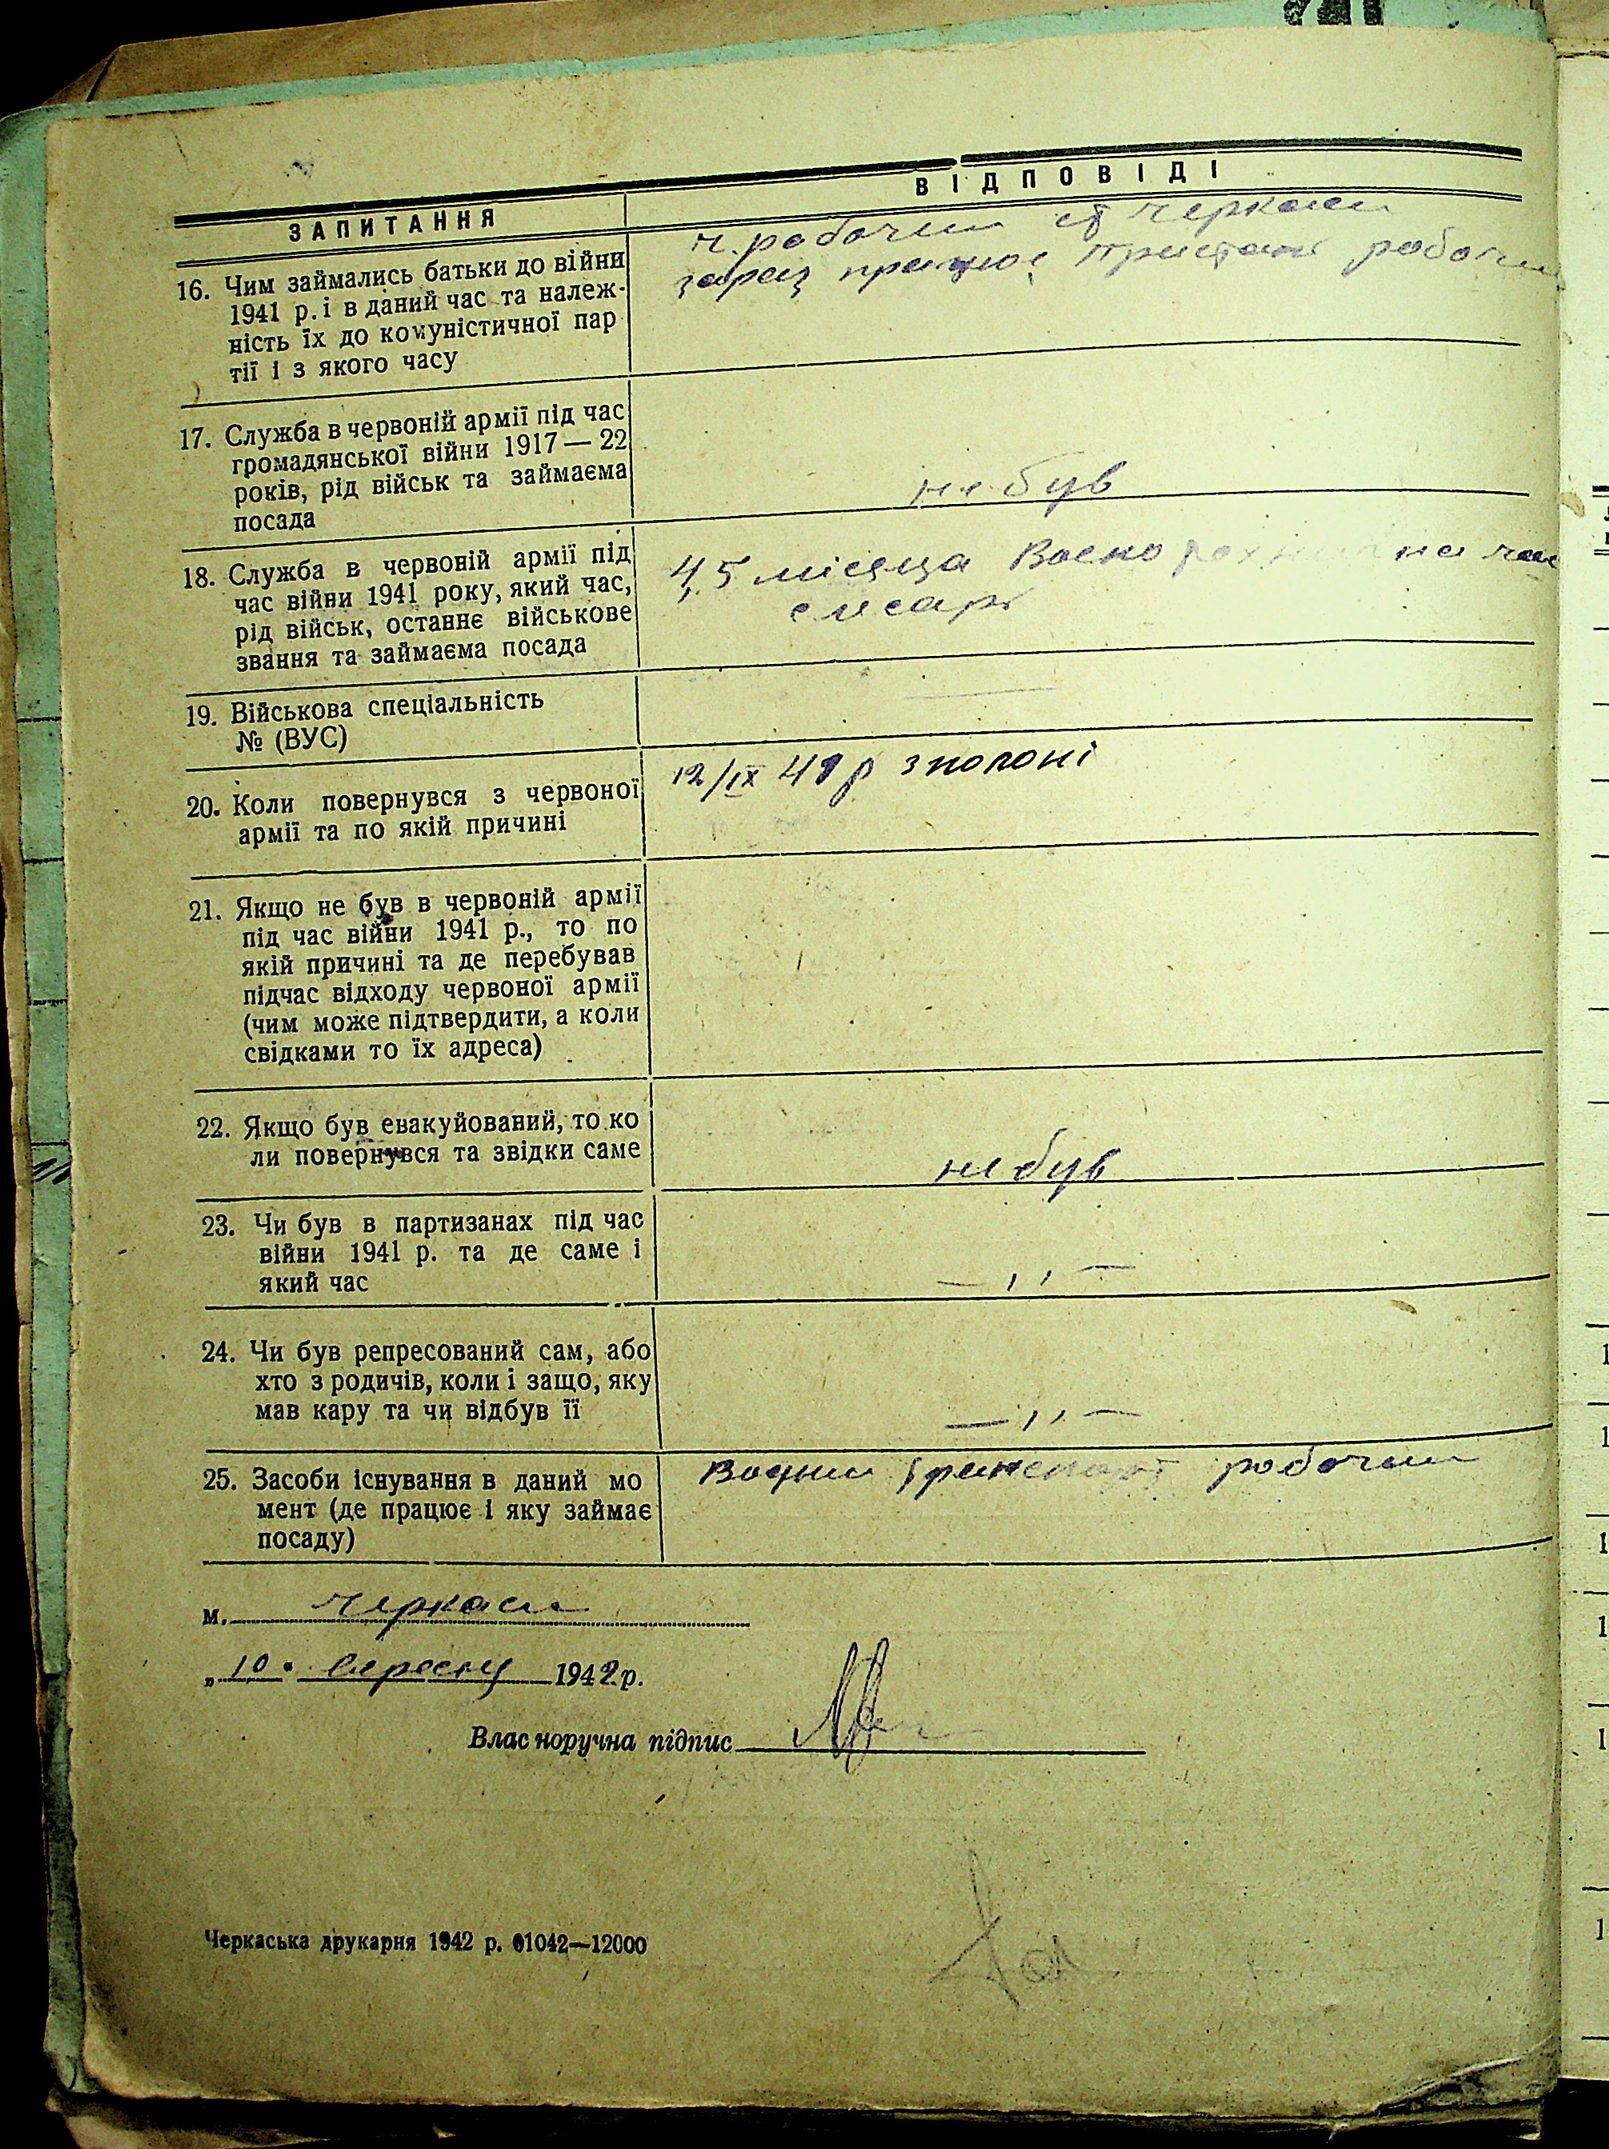 ЗАПИТАННЯ
ВІДПОВІДІ
16. Чим займались батьки до війни
1941 р. і в даний час та належ-
ність їх до комуністичної пар
тії і з якого часу
робочим Черкаси
зараз працює пристані робочим
17. Служба в червоній армії під час
громадянської війни 1917 — 22
років, рід військ та займаєма
посада
не був
18. Служба в червоній армії під
час війни 1941 року, який час,
рід військ, останнє військове
звання та займаєма посада
4,5 місяца
19. Військова спеціальність
№ (ВУС)
20. Коли повернувся з червоної
армії та по якій причині
12/IX 41 р з полоні
21. Якщо не був в червоній армії
під час війни 1941 р., то по
якій причині та де перебував
підчас відходу червоної армії
(чим може підтвердити, а коли
свідками то їх адреса)
22. Якщо був евакуйований, то ко
ли повернувся та звідки саме
не був
23. Чи був в партизанах під час
війни 1941 р. та де саме і
який час
— ,, —
24. Чи був репресований сам, або
хто з родичів, коли і защо, яку
мав кару та чи відбув її
— ,, —
25. Засоби існування в даний мо
мент (де працює і яку займає
посаду)
Водний транспорт робочим
м. Черкаси
„10" вересня 1942 р.
Власноручна підпис
Черкаська друкарня 1942 р. 01042—12000